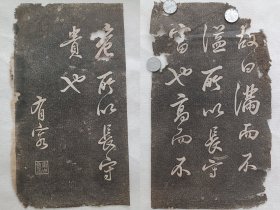 故曰滿而不
溢所以長守
富也高而不
危所以長守
貴也
有容